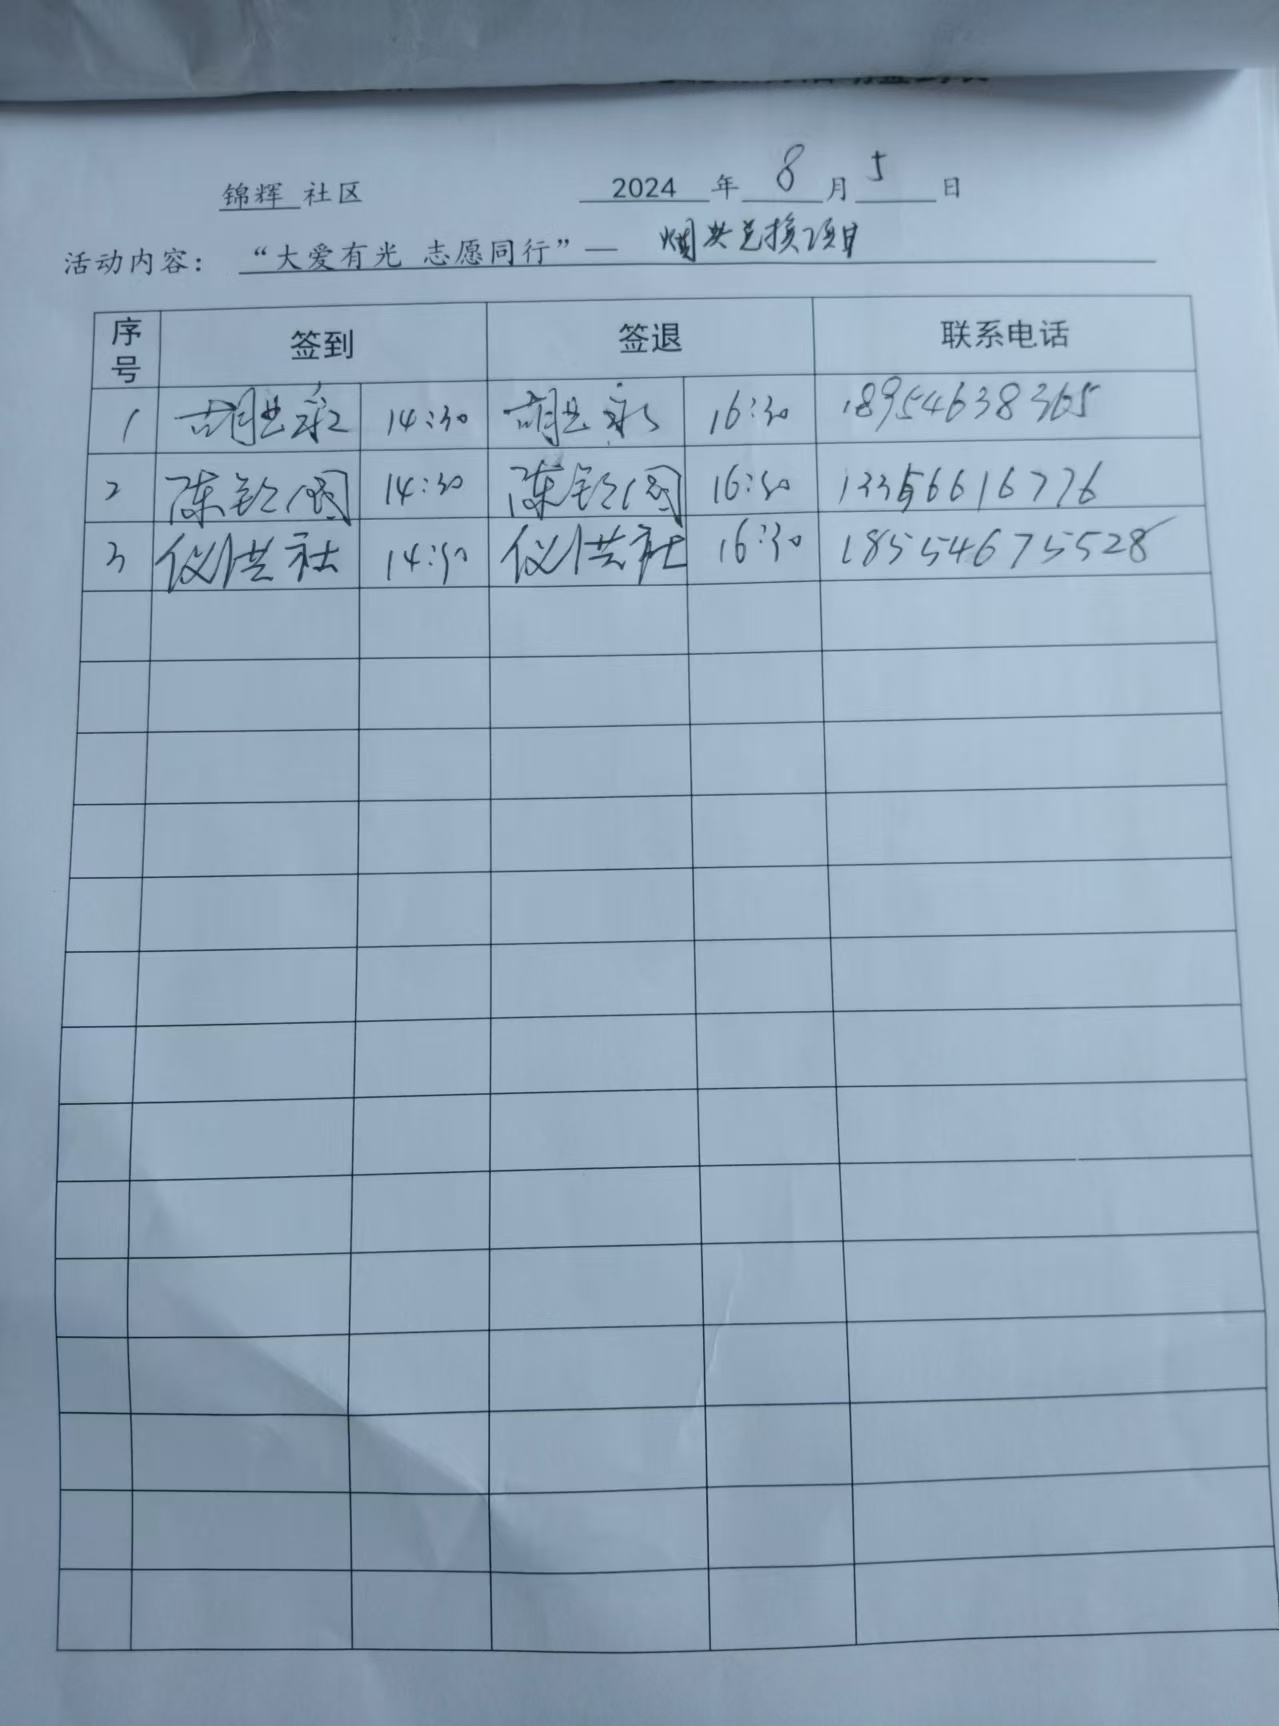 锦辉 社区 2024 年 8 月 5 日
活动内容： “大爱有光 志愿同行”— 烟头兑换项目
序号 签到 签退 联系电话
1 胡 永 14:30 胡 永 16:30 18954638365
2 陈 国 14:30 陈 国 16:30 13356616776
3 仪洪社 14:30 仪洪社 16:30 18554675528